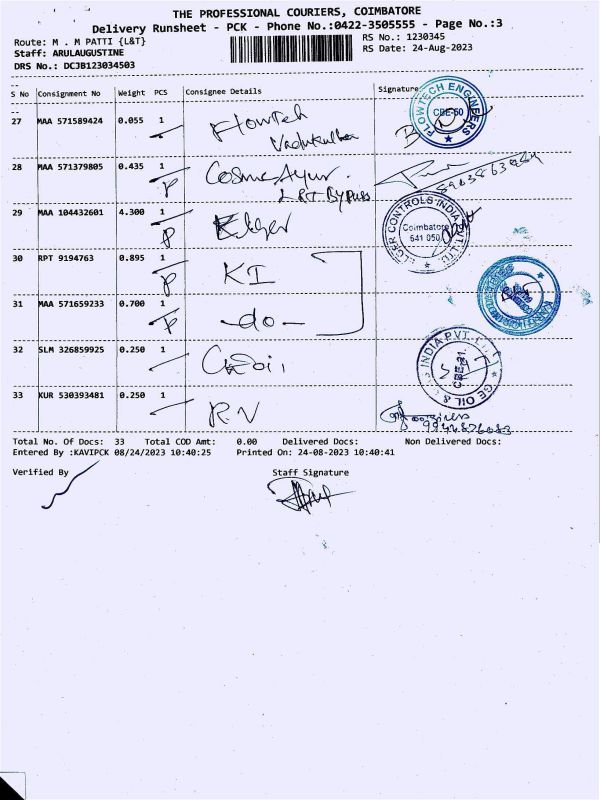 THE PROFESSIONAL COURIERS, COIMBATORE
Delivery Runsheet - PCK - Phone No.:0422-3505555 - Page No.:3
Route: M . M PATTI {L&T}
RS No.: 1230345
Staff: ARULAUGUSTINE
RS Date: 24-Aug-2023
DRS No.: DCJB123034503
S No Consignment No Weight PCS Consignee Details Signature
27 MAA 571589424 0.055 1 Flowtech
FLOWTECH ENGINEERS CBE-50
28 MAA 571379805 0.435 1 Cosme Ayur.
P L&T Bypass
29 MAA 104432601 4.300 1 Elger
P
ELGER CONTROLS INDIA PVT. LTD. Coimbatore 641 050
30 RPT 9194763 0.895 1 KI
P
31 MAA 571659233 0.700 1 -do-
P
32 SLM 326859925 0.250 1 Ge oil
GE OIL & INDIA PVT. LTD. CBE-21
33 KUR 530393481 0.250 1 R.N
Total No. Of Docs: 33 Total COD Amt: 0.00 Delivered Docs: Non Delivered Docs:
Entered By :KAVIPCK 08/24/2023 10:40:25 Printed On: 24-08-2023 10:40:41
Verified By Staff Signature